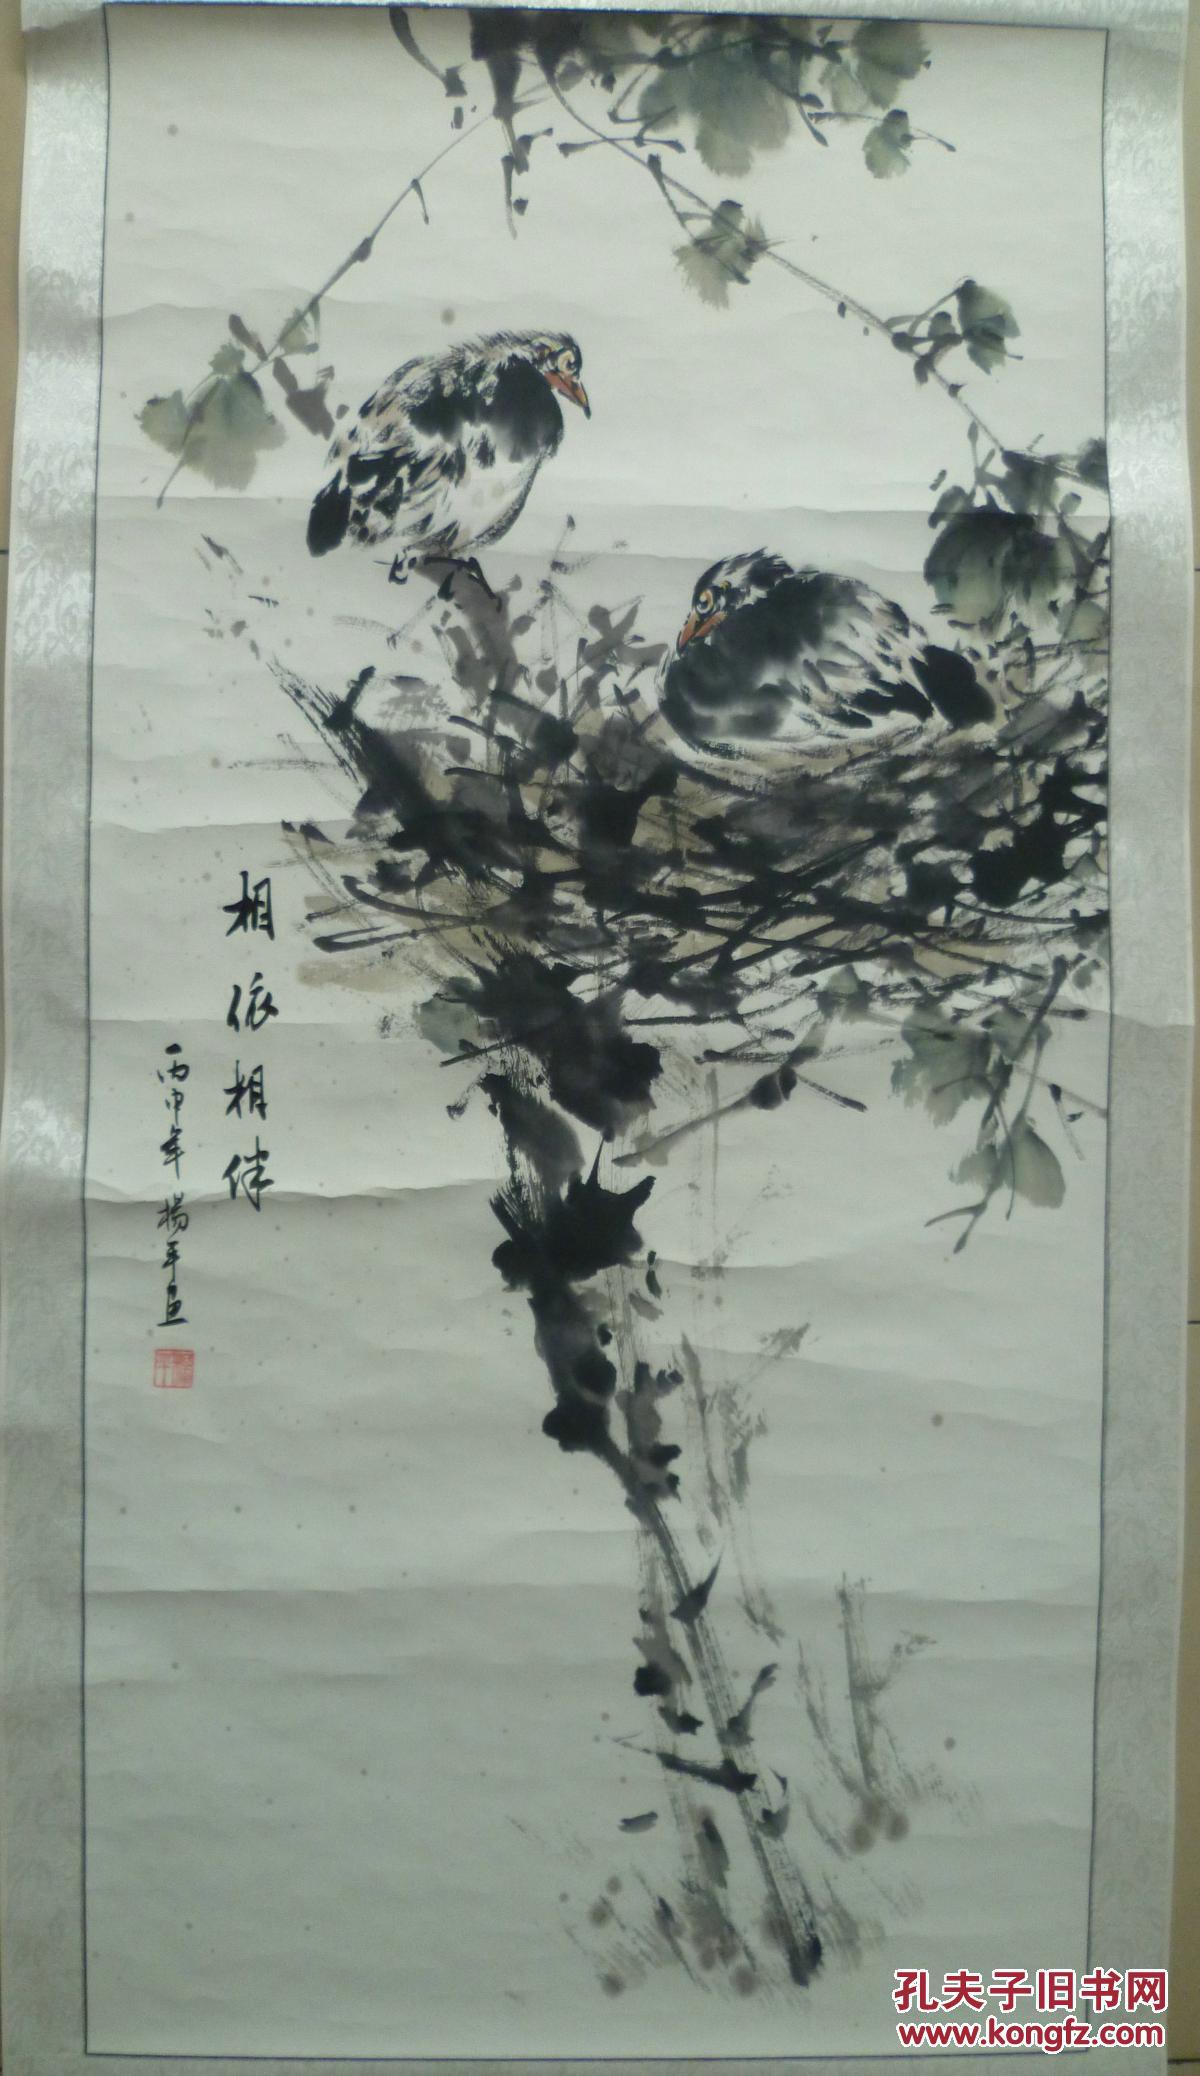 相依相伴
丙申年杨平画
孔夫子旧书网
www.kongfz.com